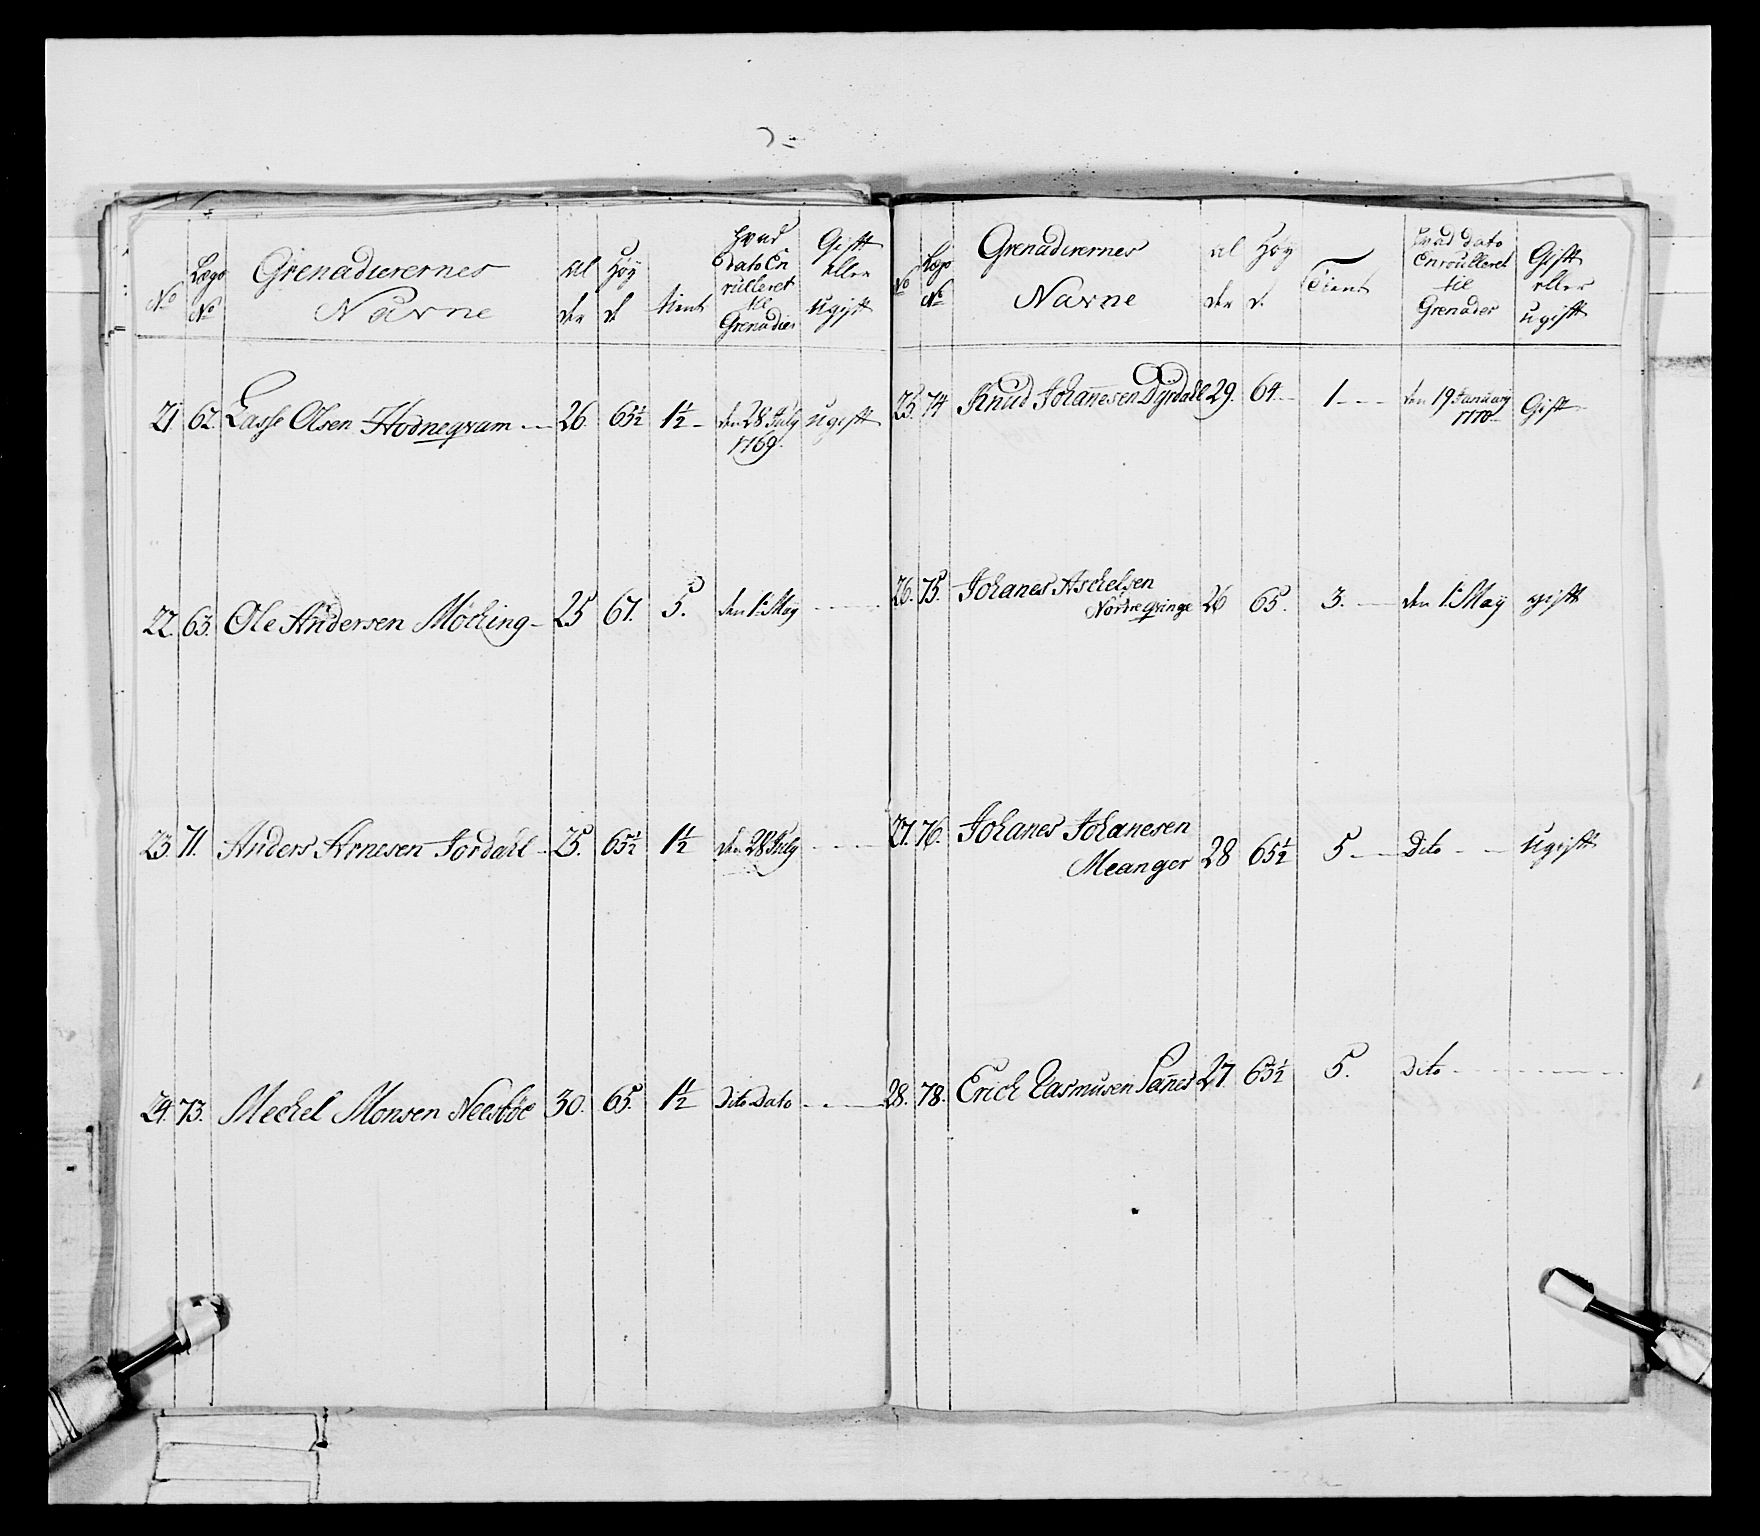 No Lægs No Grenadeerernes Navne al der Høy d tient hvad dato En rulleret til Grenadier Gift eller ugift
21 62 Lasse Olsen Hodnegram 26. 65½ 1½ den 28 July 1769. ugift
22. 63. Ole Andersen Möcking 25 67. 5. den 1. May
23. 71. Anders Arnesen Jordahl 25. 65½ 1½ den 28 July
24. 73. Meckel Monsen Neesbøe 30. 65. 1½ Dito Dato
No Lægs No Grenadeerernes Navne al der Høy d. Tient hvad dato Enroulleret til Grenader Gift eller ugift
25. 74 Knud Johannesen Dyrdal 29. 64 1 den 19 January 1770 Gift
26. 75. Johanes Aschelsen
Nordregringe 26 65. 3. den 1. May gift
27. 76. Johanes Johanesen
Meanger 28 65½ 5 Dito Ugift
28. 78. Erich Rasmusen Sannes 27 65½ 5. Dito